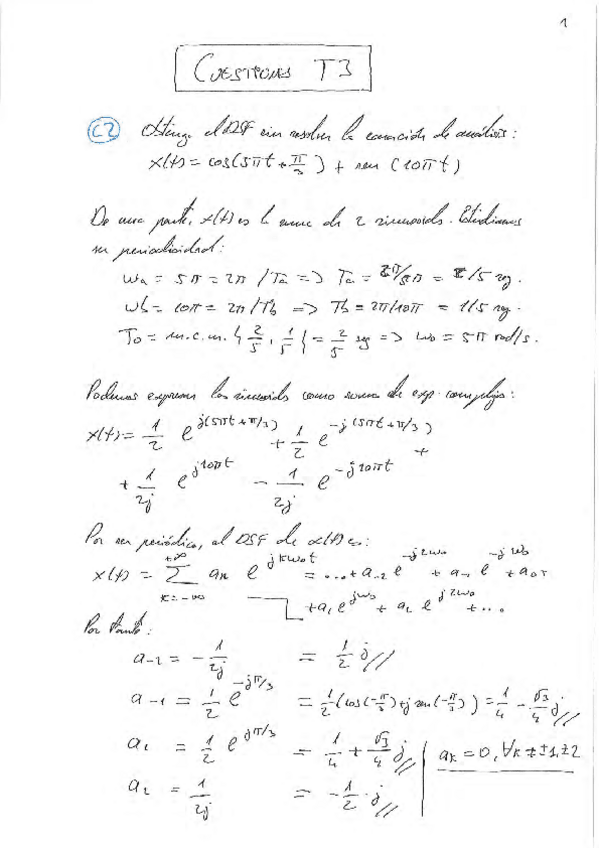 1
CUESTIONES T3
C2 Obtenga el DSF sin resolver la ecuación de análisis:
x(t) = cos(5πt + π/3) + sen(10πt)
De una parte, x(t) es la suma de 2 sinusoids. Estudiamos
su periodicidad:
ωa = 5π = 2π/Ta => Ta = 2π/5π = 2/5 sg.
ωb = 10π = 2π/Tb => Tb = 2π/10π = 1/5 sg.
T0 = m.c.m. { 2/5, 1/5 } = 2/5 sg => ω0 = 5π rad/s.
Podemos expresar las sinusoids como suma de exp. complejas:
x(t) = 1/2 e^{j(5πt+π/3)} + 1/2 e^{-j(5πt+π/3)} +
+ 1/2j e^{j10πt} - 1/2j e^{-j10πt}
Por ser periódica, el DSF de x(t) es:
x(t) = Σ_{k=-∞}^{+∞} ak e^{jkω0t} = ...+a-2 e^{-j2ω0} + a-1 e^{-jω0} + a0 +
+a1 e^{jω0} + a2 e^{j2ω0} + ...
Por tanto:
a-2 = - 1/2j = 1/2 j//
a-1 = 1/2 e^{-jπ/3} = 1/2 (cos(-π/3)+j sen(-π/3)) = 1/4 - √3/4 j//
a1 = 1/2 e^{jπ/3} = 1/4 + √3/4 j// ak = 0, ∀k ≠ ±1, ±2
a2 = 1/2j = - 1/2 · j//